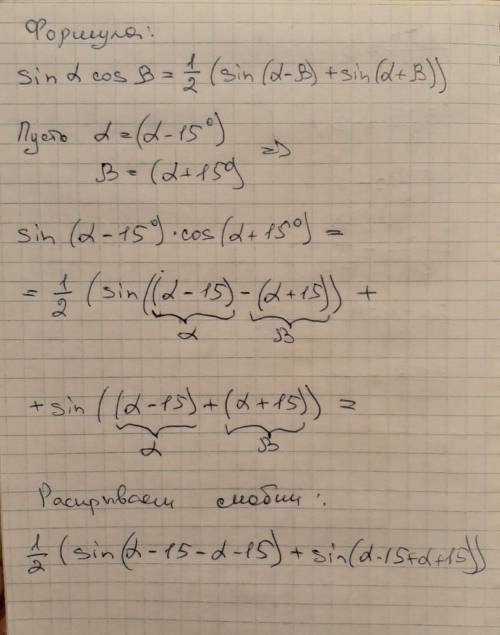 Формула:
sin α cos β = 1/2 (sin(α-β) + sin(α+β))
Пусть α = (α-15°)
β = (α+15°) =>
sin (α-15°)·cos(α+15°) =
= 1/2 (sin((α-15)-(α+15)) +
α β
+ sin ((α-15)+(α+15)) =
α β
Раскрываем скобки:
1/2 (sin(α-15-α-15) + sin(α-15+α+15))